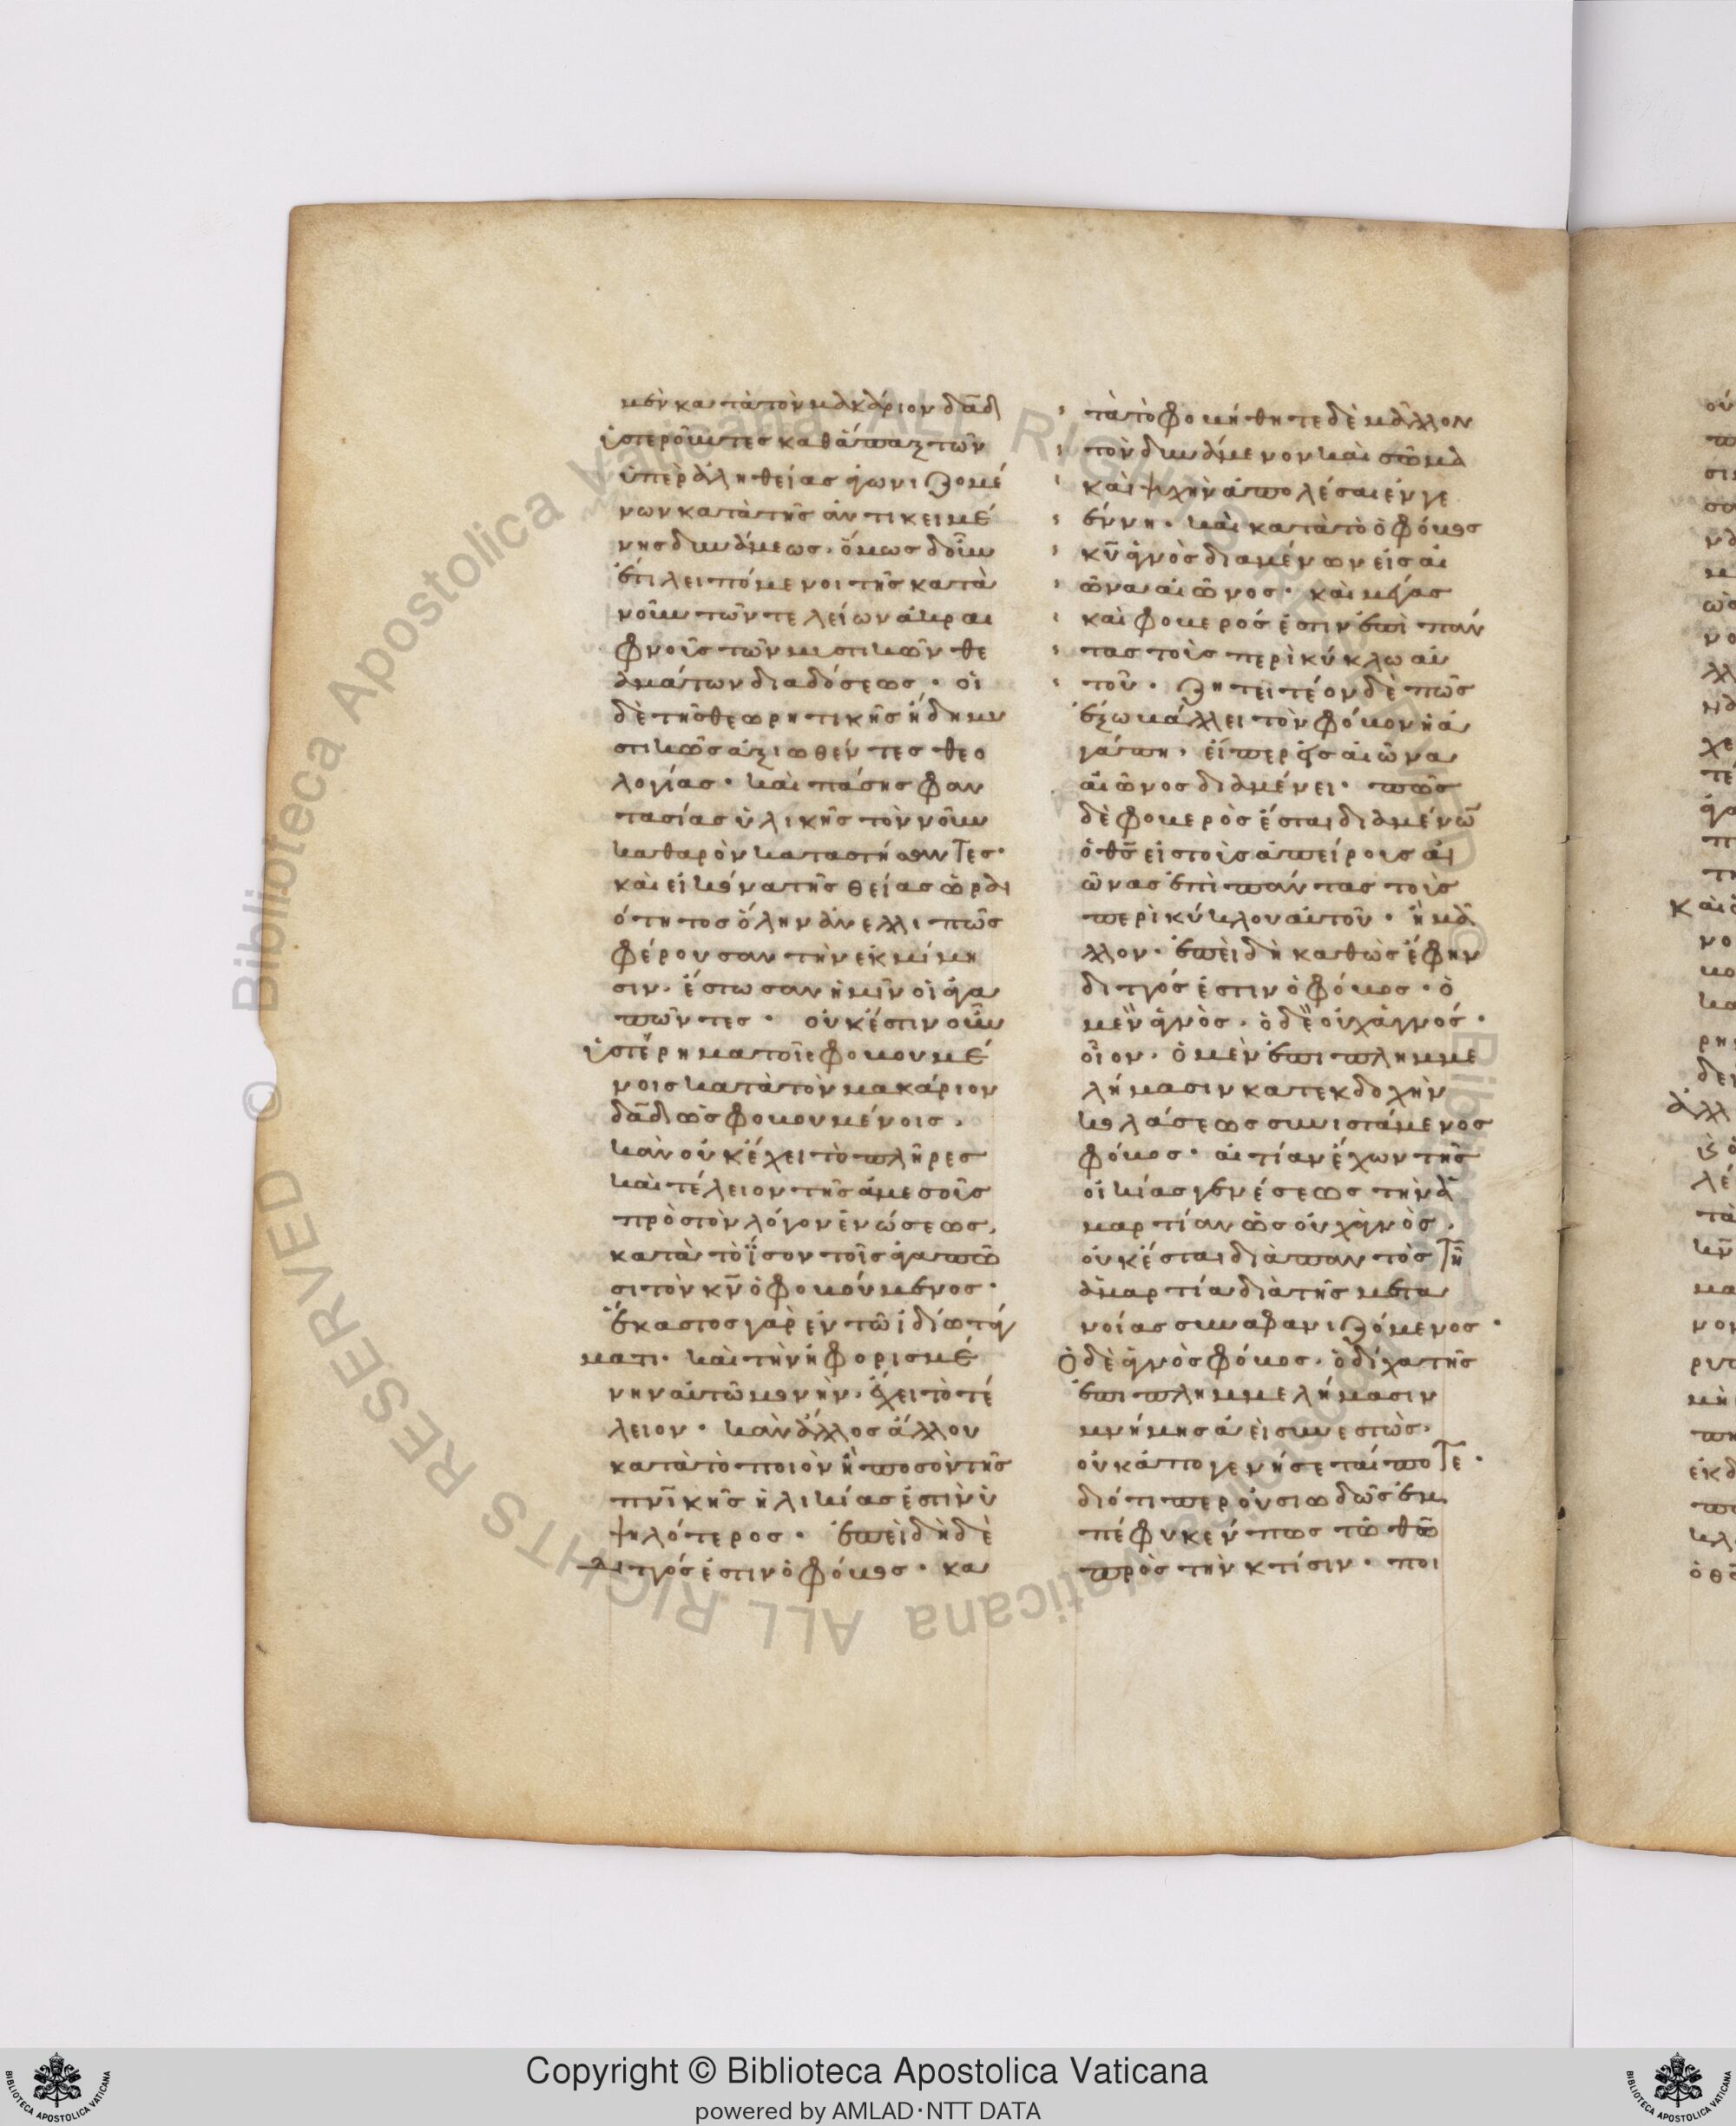 μὲν κατὰ τὸν μακάριον δᾱδ
ὑστεροῦντες καθάπαξ τῶν
ὑπὲρ ἀληθείας ἀγωνιζομέ
νων κατὰ τῆς ἀντικειμέ
νης δυνάμεως· ὅμως δ' οὖν
ἐπιλειπόμενοι τῆς κατὰ
νοῦν τῶν τελείων ἀκραι
φνοῦς τῶν μυστικῶν θε
αμάτων διαδόσεως· οἱ
δὲ τῆς θεωρητικῆς ἤδη μυ
στικῶς ἀξιωθέντες θεο
λογίας· καὶ πάσης φαν
τασίας ὑλικῆς τὸν νοῦν
καθαρὸν καταστήσαντες·
καὶ εἰκόνα τῆς θείας ὡραι
ότητος ὅλην ἀνελλιπῶς
φέρουσαν τὴν ἐκμίμη
σιν· ἔστωσαν ἡμῖν οἱ ἀγα
πῶντες· οὐκ ἔστιν οὖν
ὑστέρημα τοῖς φοβουμέ
νοις κατὰ τὸν μακάριον
δᾱδ ὡς φοβουμένοις·
κἂν οὐκ ἔχει τὸ πλῆρες
καὶ τέλειον τῆς ἀμέσου
πρὸς τὸν λόγον ἑνώσεως,
κατὰ τὸ ἴσον τοῖς ἀγαπῶ
σι τὸν κ̅ν̅ ὁ φοβούμενος·
ἕκαστος γὰρ ἐν τῷ ἰδίῳ τάγ
ματι· καὶ τὴν ἀφορισμέ
νην αὐτῷ μονὴν· ἔχει τὸ τέ
λειον· κἂν ἄλλος ἄλλου
κατὰ τὸ ποιὸν ἢ ποσὸν τῆς
π̅ν̅ικῆς ἡλικίας ἐστὶν ὑ
ψηλότερος· ἐπειδὴ δὲ
διττός ἐστιν ὁ φόβος· κα
τὰ τὸ φοβήθητε δὲ μᾶλλον
τὸν δυνάμενον καὶ σῶμα
καὶ ψυχὴν ἀπολέσαι ἐν γε
έννῃ· καὶ κατὰ τὸ ὁ φόβος
κ̅υ̅ ἁγνὸς διαμένων εἰς αἰ
ῶνα αἰῶνος· καὶ μέγας
καὶ φοβερός ἐστιν ἐπὶ πάν
τας τοὺς περὶ κύκλῳ αὐ
τοῦ· ζητητέον δὲ πῶς
ἔξω βάλλει τὸν φόβον ἡ ἀ
γάπη· εἴπερ εἰς αἰῶνα
αἰῶνος διαμένει· πῶς
δὲ φοβερὸς ἔσται διαμένω̅
ὁ θ̅ς̅ εἰς τοὺς ἀπείρους αἰ
ῶνας ἐπὶ πάντας τοὺς
περὶ κύκλου αὐτοῦ· ἢ μᾶ
λλον· ἐπειδὴ καθὼς ἔφην
διττός ἐστιν ὁ φόβος· ὁ
μὲν ἁγνὸς· ὁ δὲ οὐχ ἁγνός·
οἷον· ὁ μὲν ἐπὶ πλημμε
λήμασιν κατ' ἐκδοχὴν
κολάσεως συνιστάμενος
φόβος· αἰτίαν ἔχων τῆς
οἰκίας γενέσεως τὴν ἁ
μαρτίαν ὡς οὐχ ἁγνὸς·
οὐκ ἔσται διὰ παντὸς τῇ
ἁμαρτίᾳ διὰ τῆς μετα
νοίας συναφανιζόμενος·
Ὁ δὲ ἁγνὸς φόβος· ὁ δίχα τῆς
ἐπὶ πλημμελήμασιν
μνήμης ἀεὶ συνεστὼς·
οὐκ ἀπογενήσεταί ποτε·
διότιπερ οὐσιωδῶς ἐμ
πέφυκέν πως τῷ θ̅ω̅
πρὸς τὴν κτίσιν· ποι
Copyright © Biblioteca Apostolica Vaticana
powered by AMLAD·NTT DATA